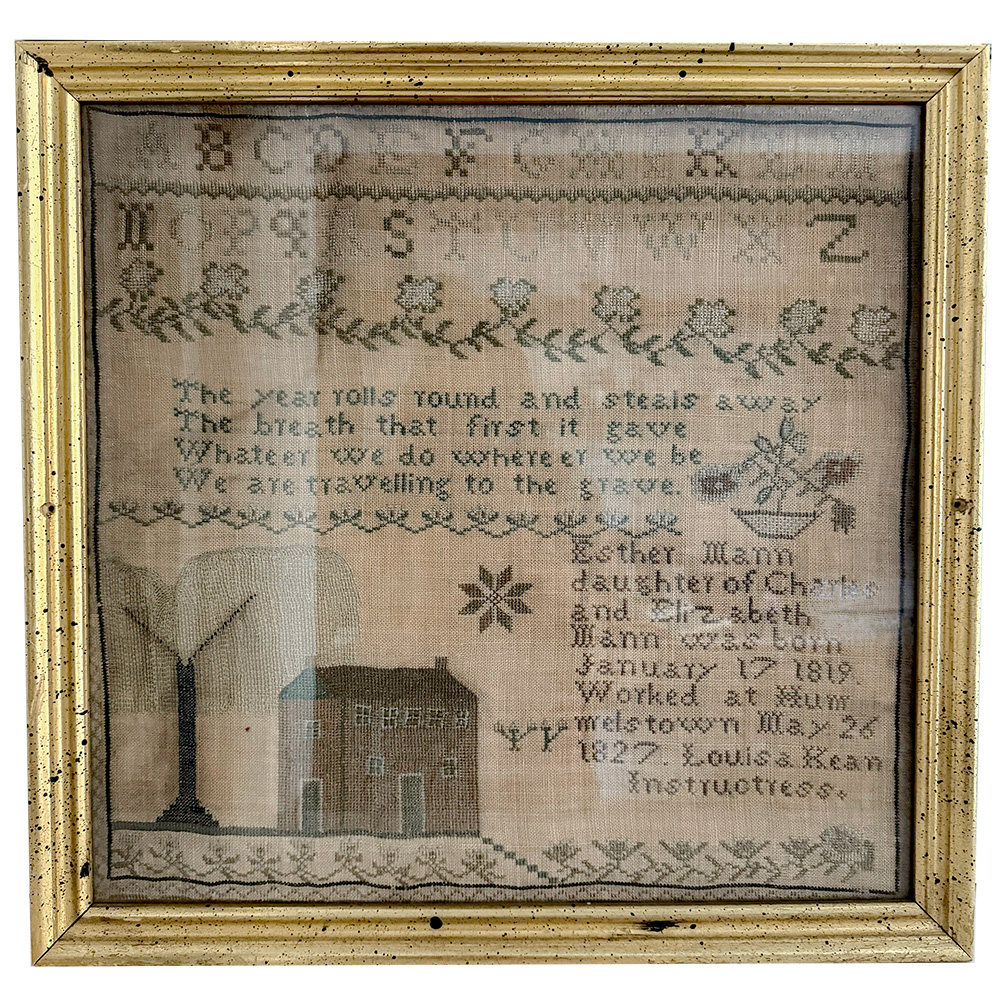 A B C D E F G H I K L M
N O P Q R S T U V W X Z
The year rolls round and steals away
The breath that first it gave
Whateer we do whereer we be
We are travelling to the grave.
Esther Mann
daughter of Charles
and Elizabeth
Mann was born
January 17 1819.
Worked at Hum
melstown May 26
1827. Louisa Kean
Instructress.